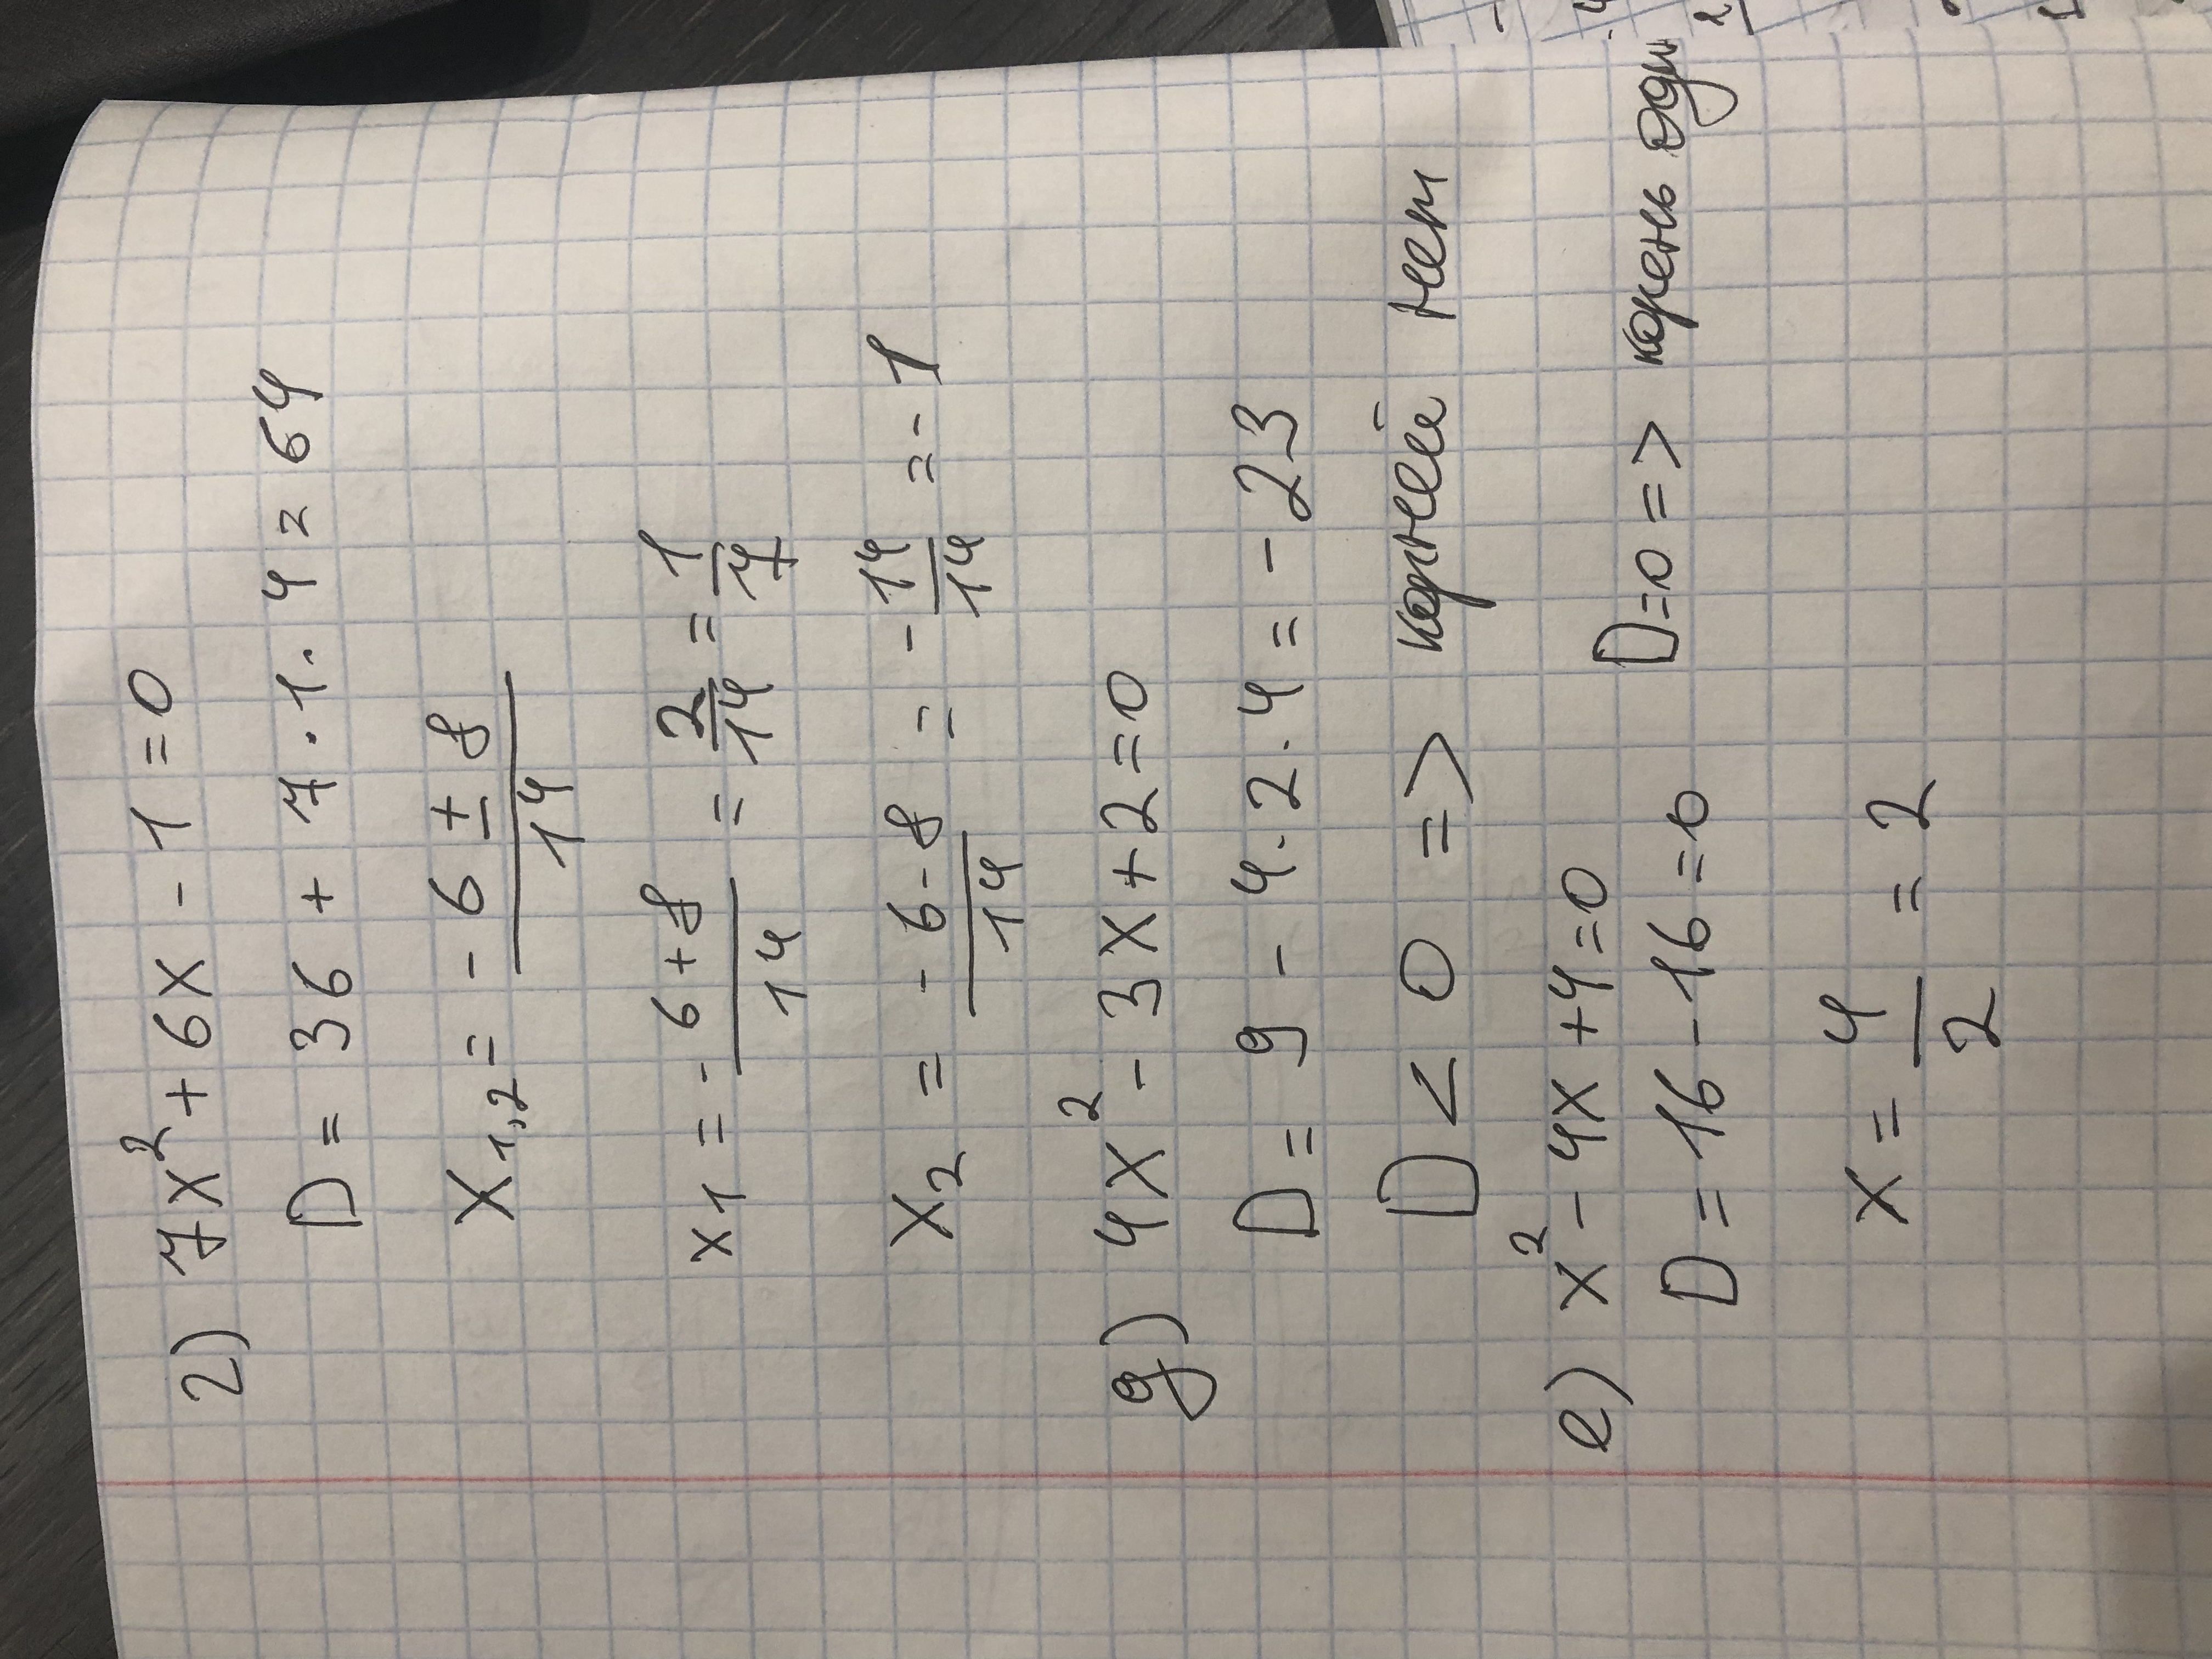 г) 7x² + 6x - 1 = 0
D = 36 + 7 · 1 · 4 = 64
x₁,₂ = (-6 ± 8)/14
x₁ = (-6 + 8)/14 = 2/14 = 1/7
x₂ = (-6 - 8)/14 = -14/14 = -1
д) 4x² - 3x + 2 = 0
D = 9 - 4 · 2 · 4 = -23
D < 0 => корней нет
е) x² - 4x + 4 = 0
D = 16 - 16 = 0 D = 0 => корень оди
x = 4/2 = 2